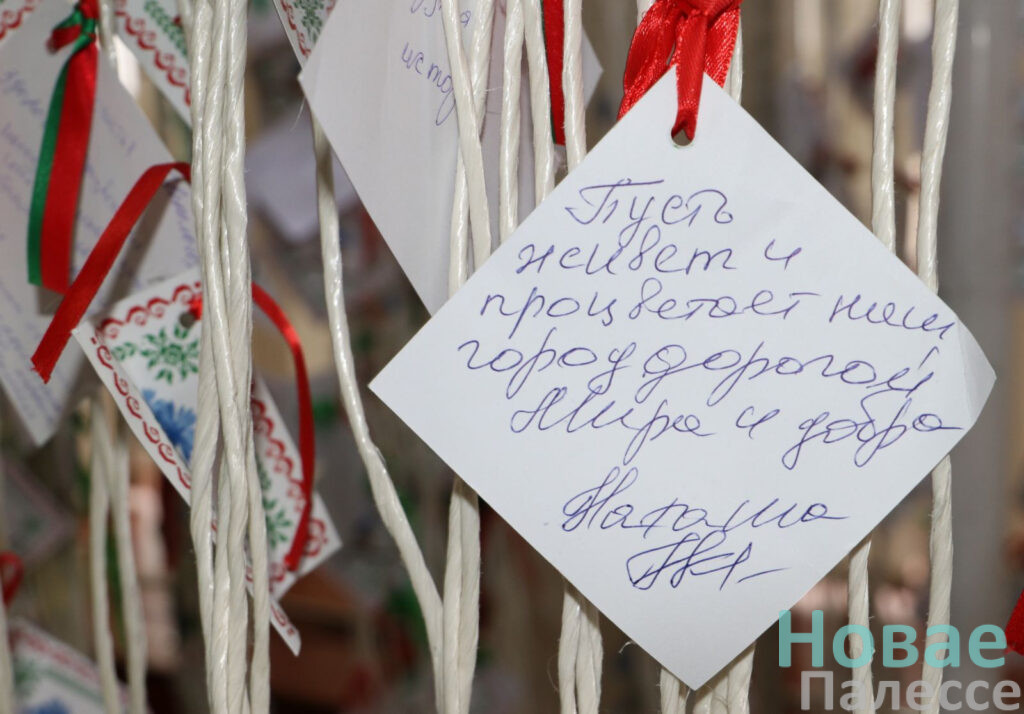 Пусть
живет и
процветает наш
город дорогой
Мира и добра
Наташа
Новае
Палессе